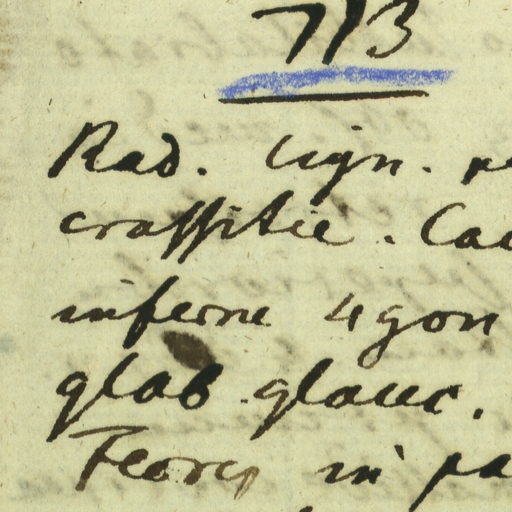 713
Rad. lign. pe
crassitie. Cau
inferne 4gon
glab. glauc.
Flores in pa